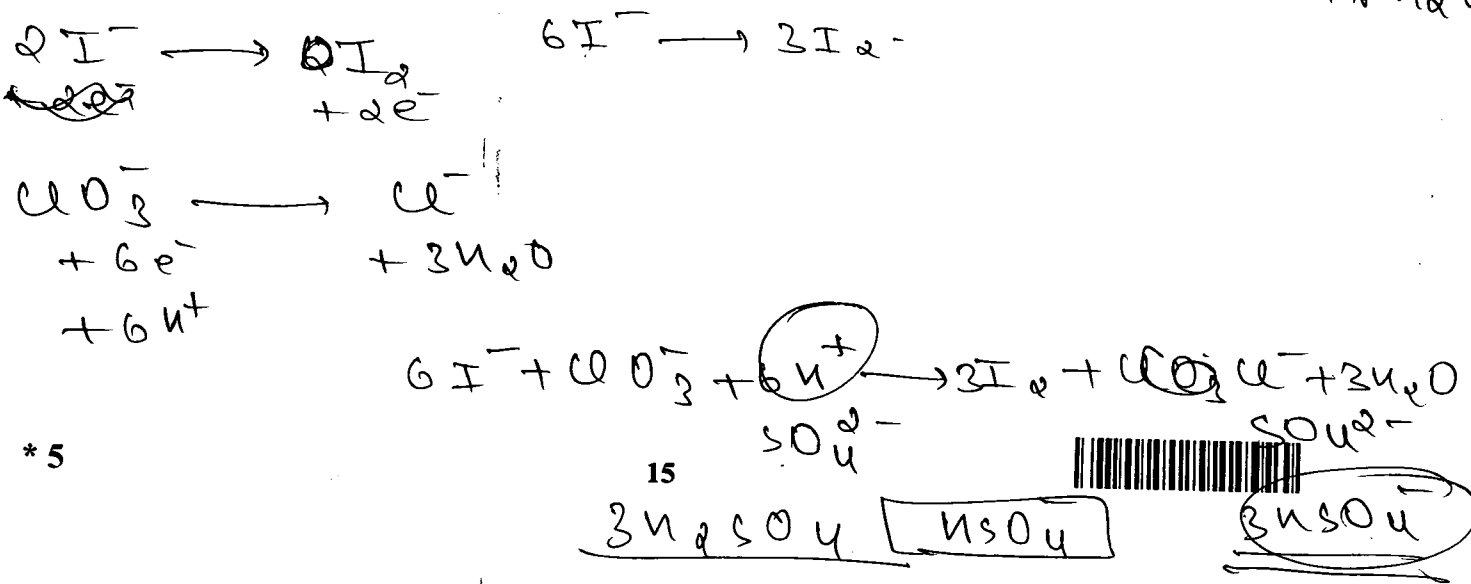 2I⁻ ⟶ I₂ + 2e⁻
6I⁻ ⟶ 3I₂
ClO₃⁻ + 6e⁻ + 6H⁺ ⟶ Cl⁻ + 3H₂O
6I⁻ + ClO₃⁻ + 6H⁺ ⟶ 3I₂ + Cl⁻ + 3H₂O
SO₄²⁻ SO₄²⁻
* 5
15
3H₂SO₄ HSO₄⁻ 3HSO₄⁻